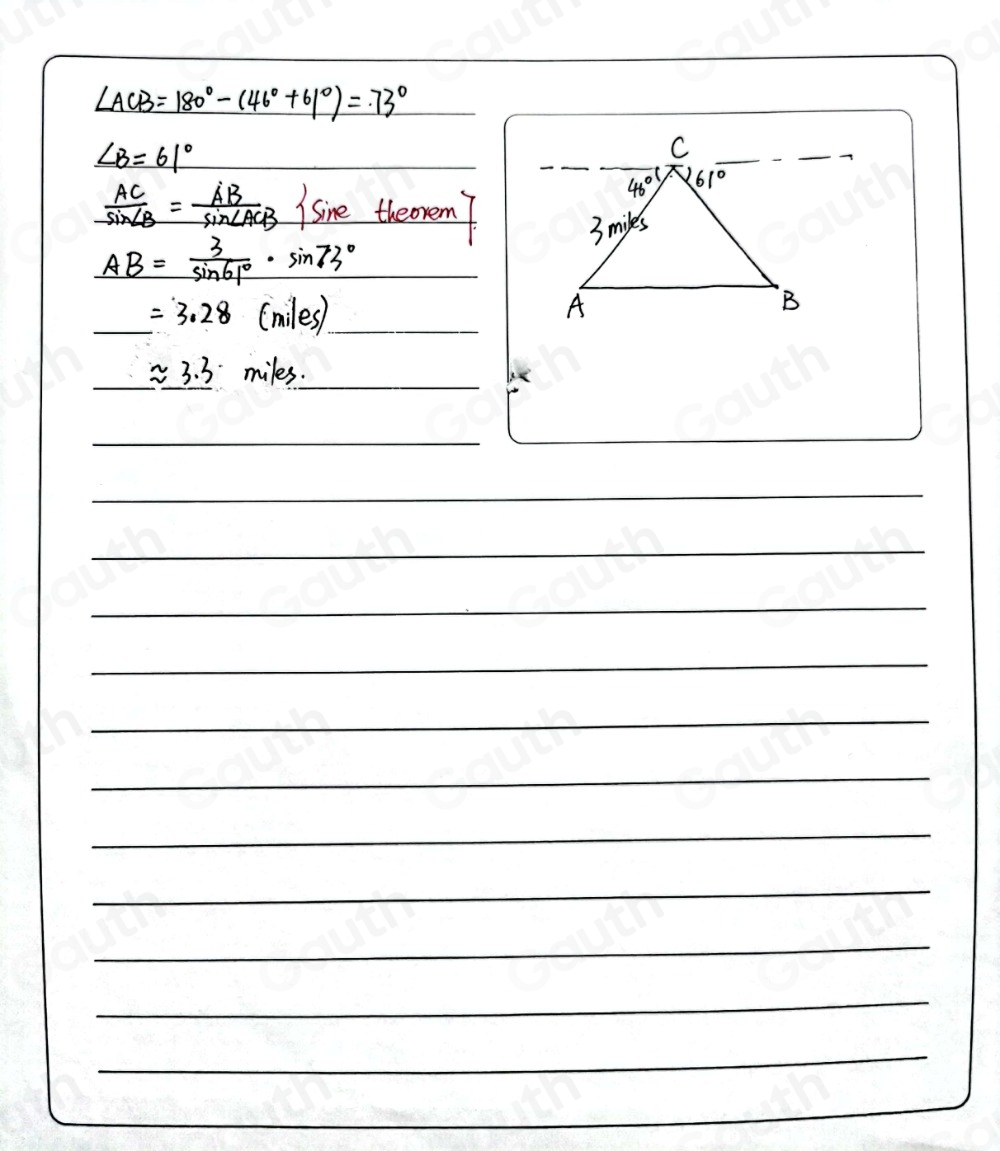 ∠ACB = 180° - (46° + 61°) = 73°
∠B = 61°
AC/sin∠B = AB/sin∠ACB {Sine theorem}
AB = 3/sin61° · sin73°
= 3.28 (miles)
≈ 3.3 miles.
C
46° 61°
3 miles
A B
Gauth